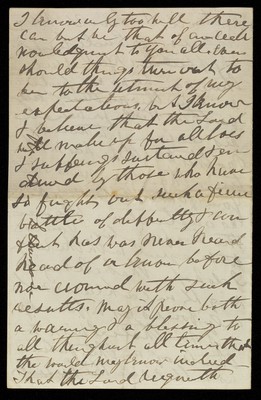 I know only too well there
can but be that of an
to you all. Even
should things turn out to
me to the utmost of my
expectations, but I know
I believe that the Lord
will make up for all loss
& sufferings sustained & en
dured by those who have
so fought out such a fierce
battle of difficulty & con
flict has was never heard
heard of or known before
nor crowned with such
results. May it prove both
a warning & a blessing to
all throughout all time that
the world may know indeed
That the Lord reigneth